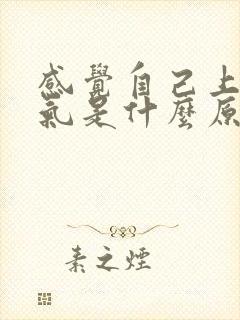 感覺自己上
氣是什麼原
素之煙